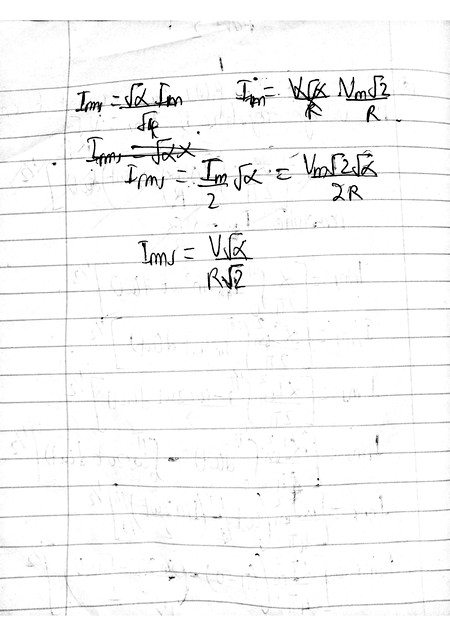 1
Irms = √α Im / √R    Im = V√α / R  Vm√2 / R .
Irms = √α x
Irms = Im / 2 √α = Vm√2√α / 2R
Irms = V√α / R√2